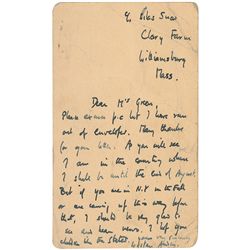 c/o Silas Snow
Clary Farm
Williamsburg
Mass.
Dear Mrs Green,
Please excuse p.c. but I have run
out of envelopes. Many thanks
for your letter. As you will see
I am in the country where
I shall be until the end of August.
But if you are in N.Y. in the Fall
or are coming up this way before
that, I should be very glad to
see and hear news. I hope you
children in the States